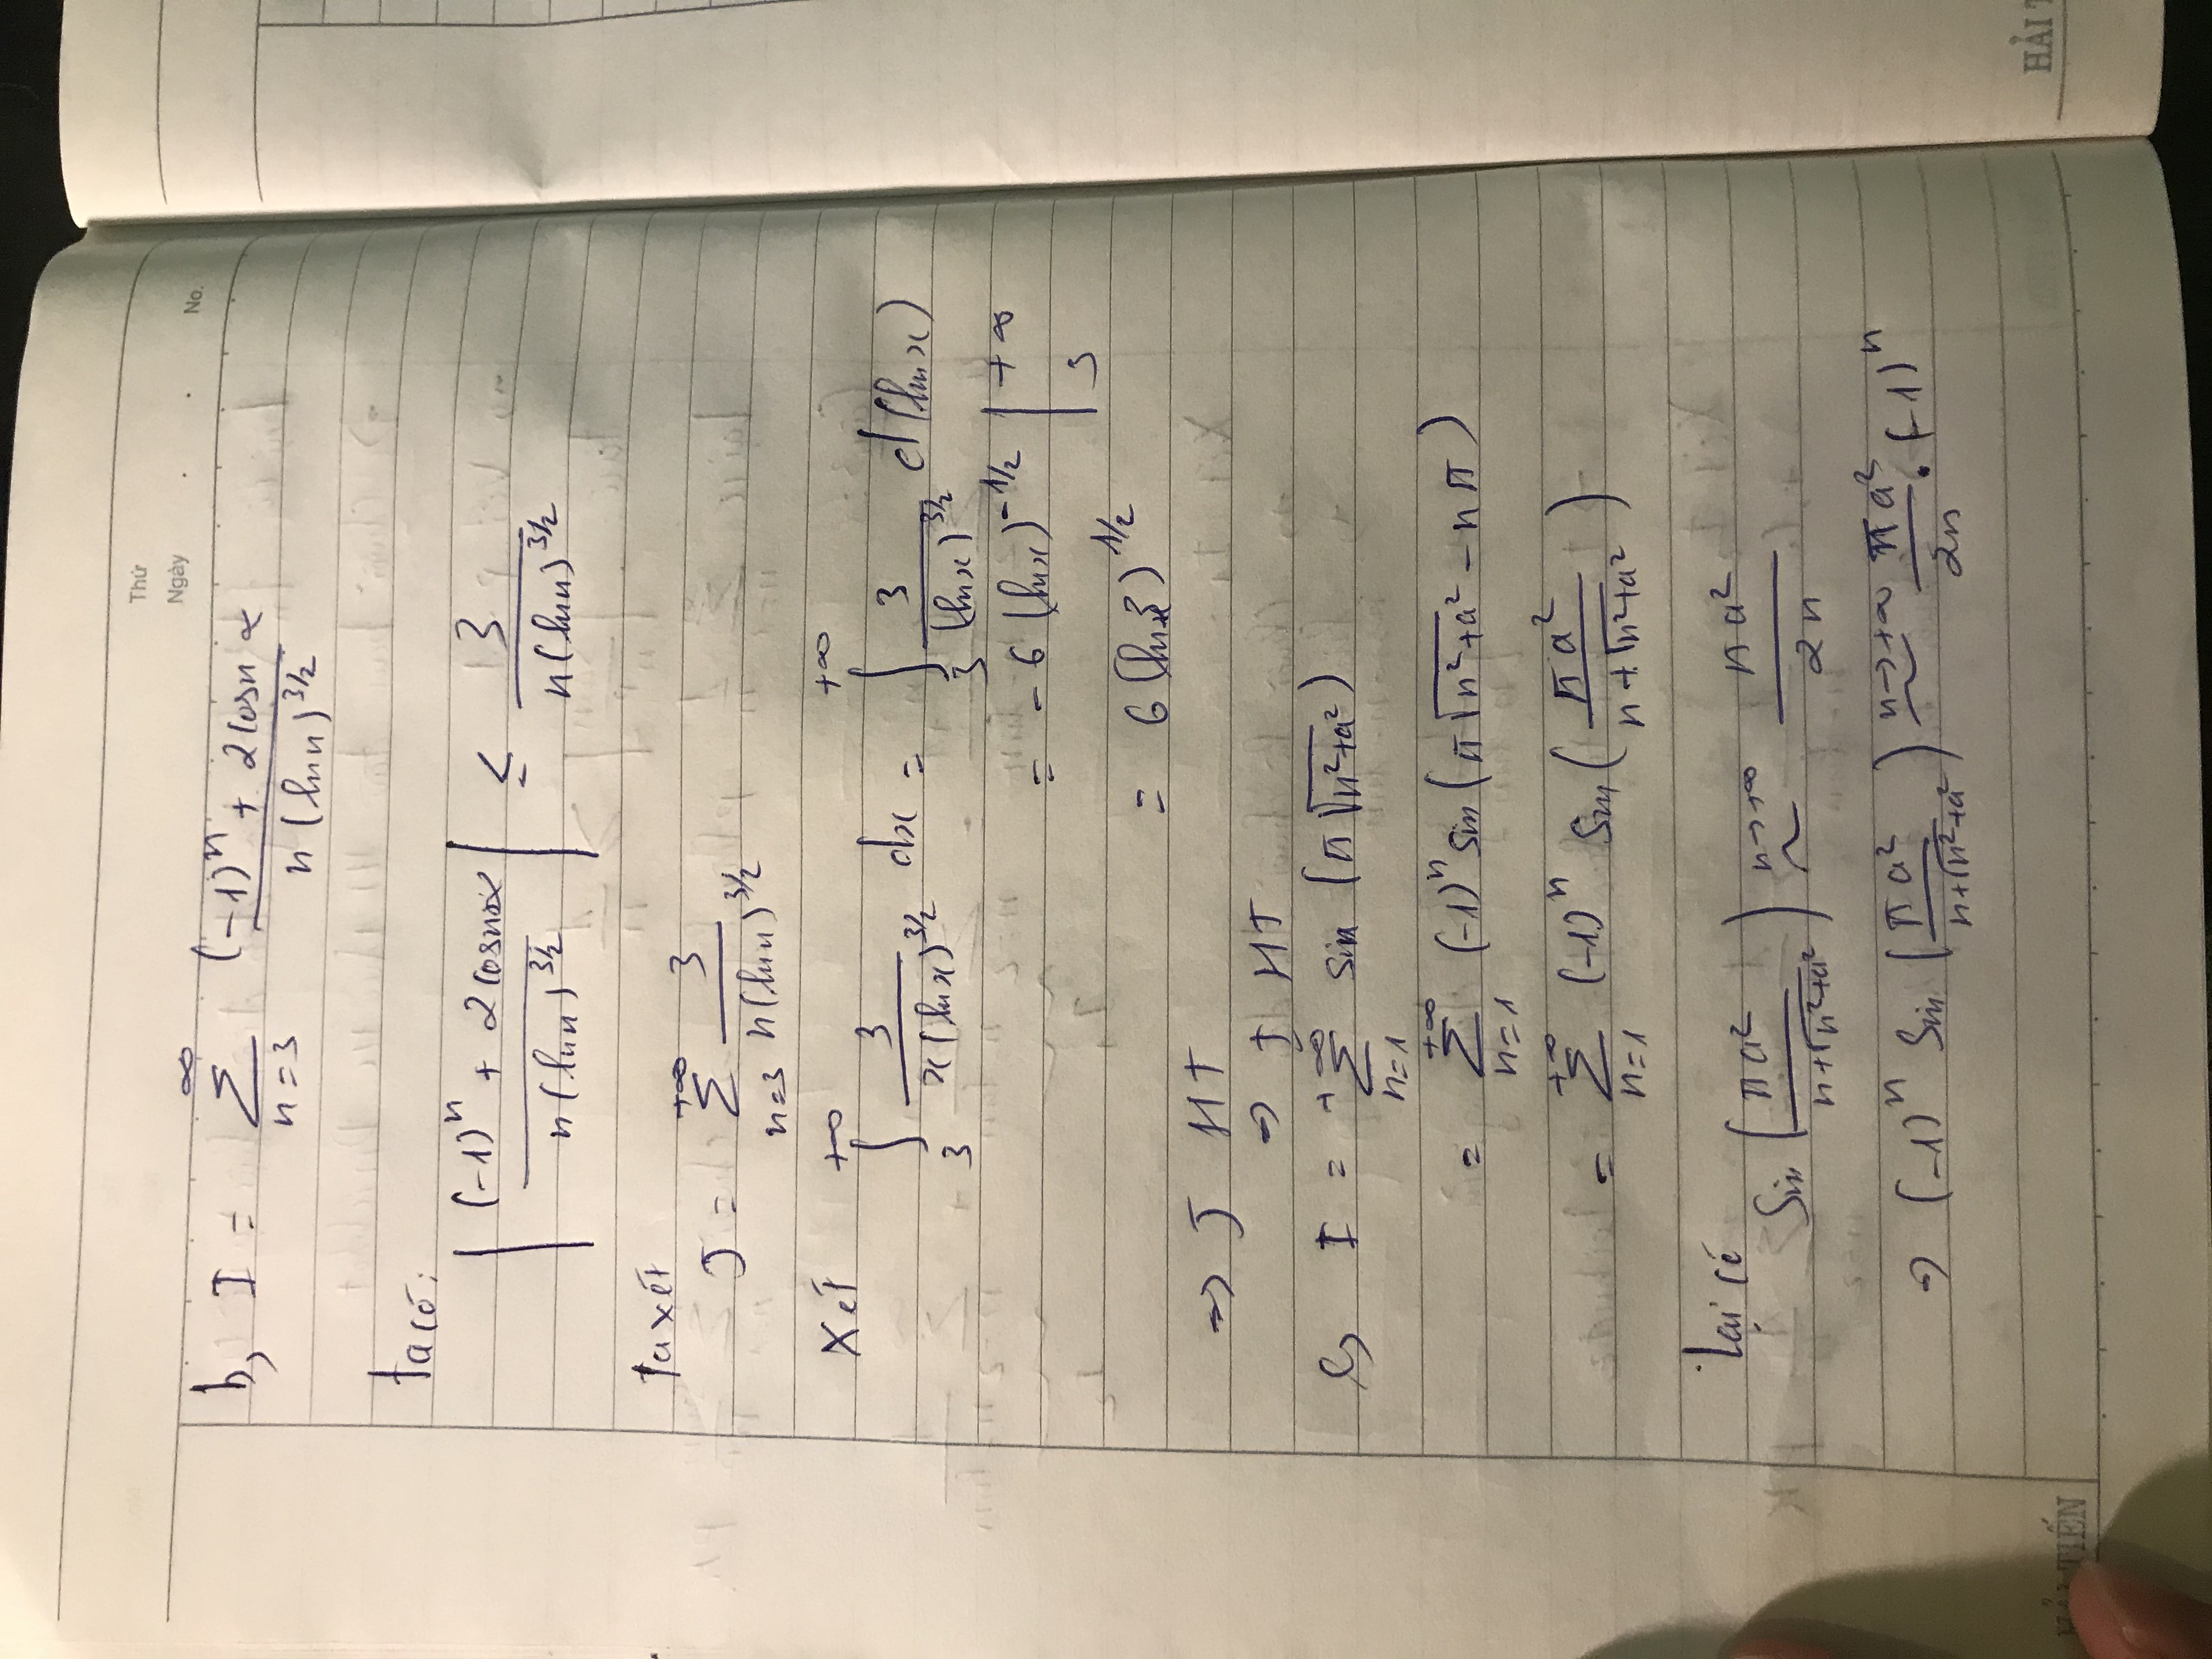 Thứ
Ngày . . No.
b, I = ∑_{n=3}^{∞} ((-1)^n + 2cosnα)/(n(lnn)^{3/2})
ta có:
|((-1)^n + 2cosnα)/(n(lnn)^{3/2})| ≤ 3/(n(lnn)^{3/2})
Ta xét
J = ∑_{n=3}^{+∞} 3/(n(lnn)^{3/2})
Xét ∫_{3}^{+∞} 3/(x(lnx)^{3/2}) dx = ∫_{3}^{+∞} 3/(lnx)^{3/2} d(lnx)
= -6(lnx)^{-1/2} |_{3}^{+∞}
= 6(ln3)^{1/2}
=> J HT
=> I HT
c, I = ∑_{n=1}^{+∞} sin(π√(n²+a²))
= ∑_{n=1}^{+∞} (-1)^n sin(π√(n²+a²) - nπ)
= ∑_{n=1}^{+∞} (-1)^n sin(πa²/(n+√(n²+a²)))
Lại có
Sin(πa²/(n+√(n²+a²))) ~^{n→+∞} πa²/2n
=> (-1)^n Sin(πa²/(n+√(n²+a²))) ~^{n→+∞} πa²/2n . (-1)^n
HẢI TIẾN
HẢI T